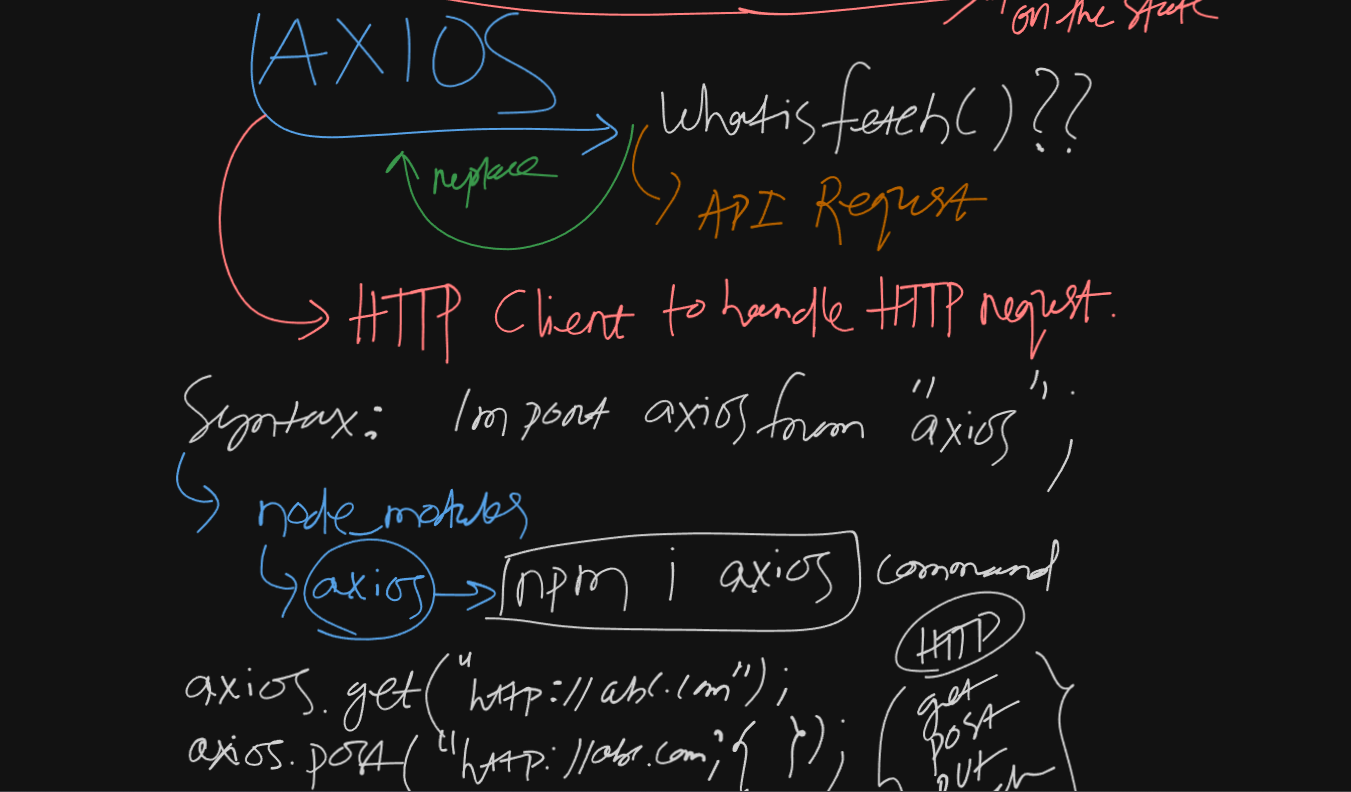 on the state
AXIOS
What is fetch()??
replace
API Request
HTTP Client to handle HTTP request.
Syntax: Import axios from "axios";
node_modules
axios npm i axios command
HTTP
axios.get("http://abc.com");
get
post
axios.post("http://abc.com", { });
put